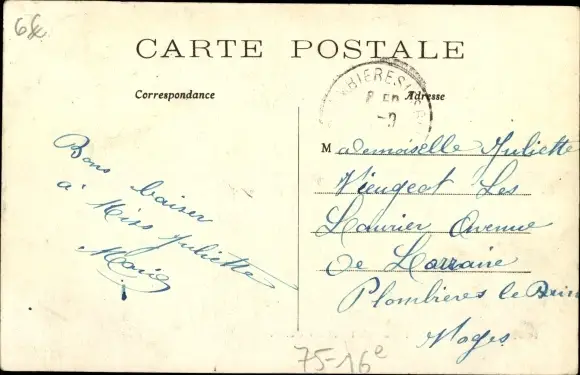 6€
CARTE POSTALE
Correspondance
Adresse
Bons baiser
à Miss Juliette
Marie
Mademoiselle Juliette
Vieugeot Les
Laurier Avenue
de Lorraine
Plombieres le Bain
Vosges
75-16e